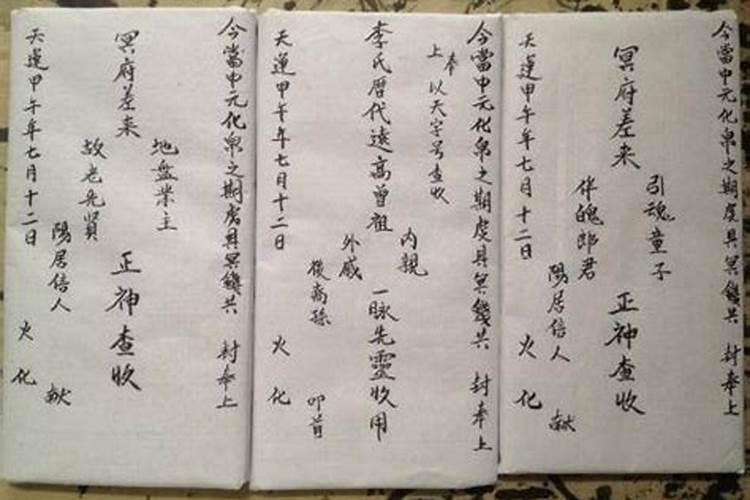 今當中元化帛之期虔具冥錢共 封奉上
冥府差来
引魂童子
伴魄郎君
正神查收
陽居信人 献
天運甲午年七月十二日 火化
今當中元化帛之期虔具冥錢共 封奉上
奉上 以天字号查收
李氏曆代遠高曾祖
内親
外戚
一脉先靈收用
後裔孫 叩首
天運甲午年七月十二日 火化
今當中元化帛之期虔具冥錢共 封奉上
冥府差来
地盤業主
故老先賢
正神查收
陽居信人 献
天運甲午年七月十二日 火化